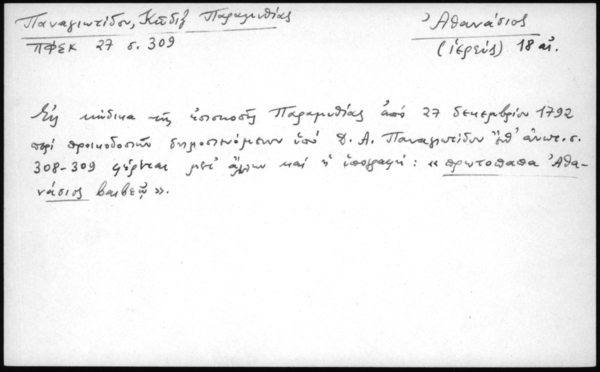 Παναγιωτίδου, Κώδιξ Παραμυθίας
ΠΦΕΚ 27 σ. 309
Ἀθανάσιος
(ἱερεύς) 18 αἰ.
Εἰς κώδικα τῆς ἐπισκοπῆς Παραμυθίας ἀπό 27 δεκεμβρίου 1792
περί προικοδοσιῶν δημοσιευόμενον ὑπό Δ. Α. Παναγιωτίδου ἔνθ' ἀνωτ. σ.
308-309 φέρεται μετ' ἄλλων καί ἡ ὑπογραφή: «πρωτοπαπα Ἀθα-
νάσιος ».